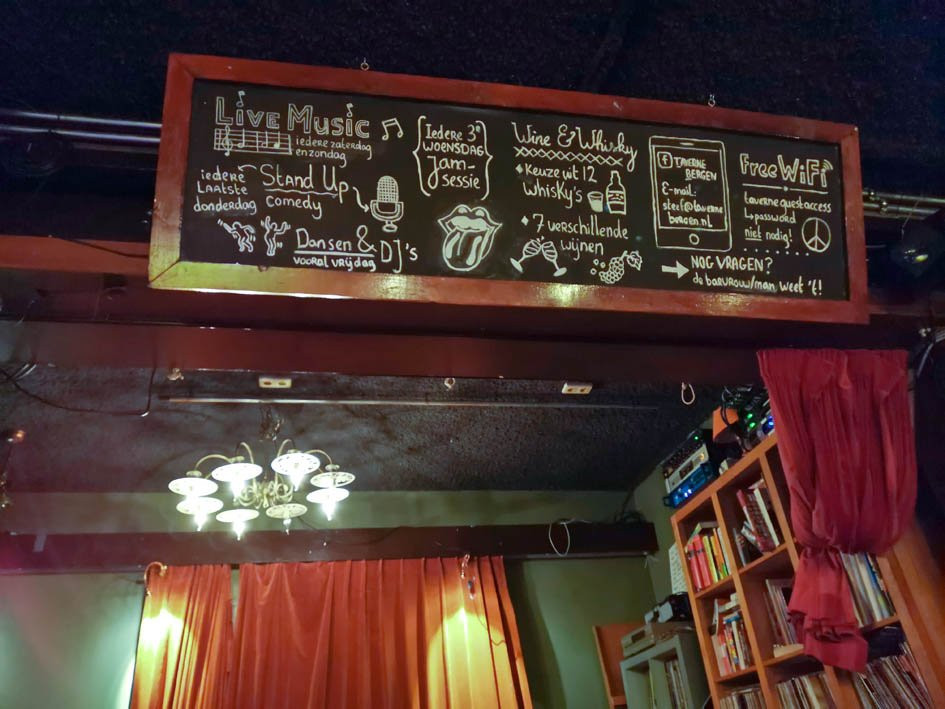 Live Music
iedere zaterdag
en zondag
iedere
laatste
donderdag
Stand Up
comedy
Dansen & DJ's
vooral vrijdag
Iedere 3e
woensdag
Jam-
sessie
Wine & Whisky
Keuze uit 12
Whisky's
7 verschillende
wijnen
f Taverne
Bergen
E-mail:
steef@taverne
bergen.nl
Free WiFi
Taverne guest access
password
niet nodig!
NOG VRAGEN?
de barvrouw/man weet 't!